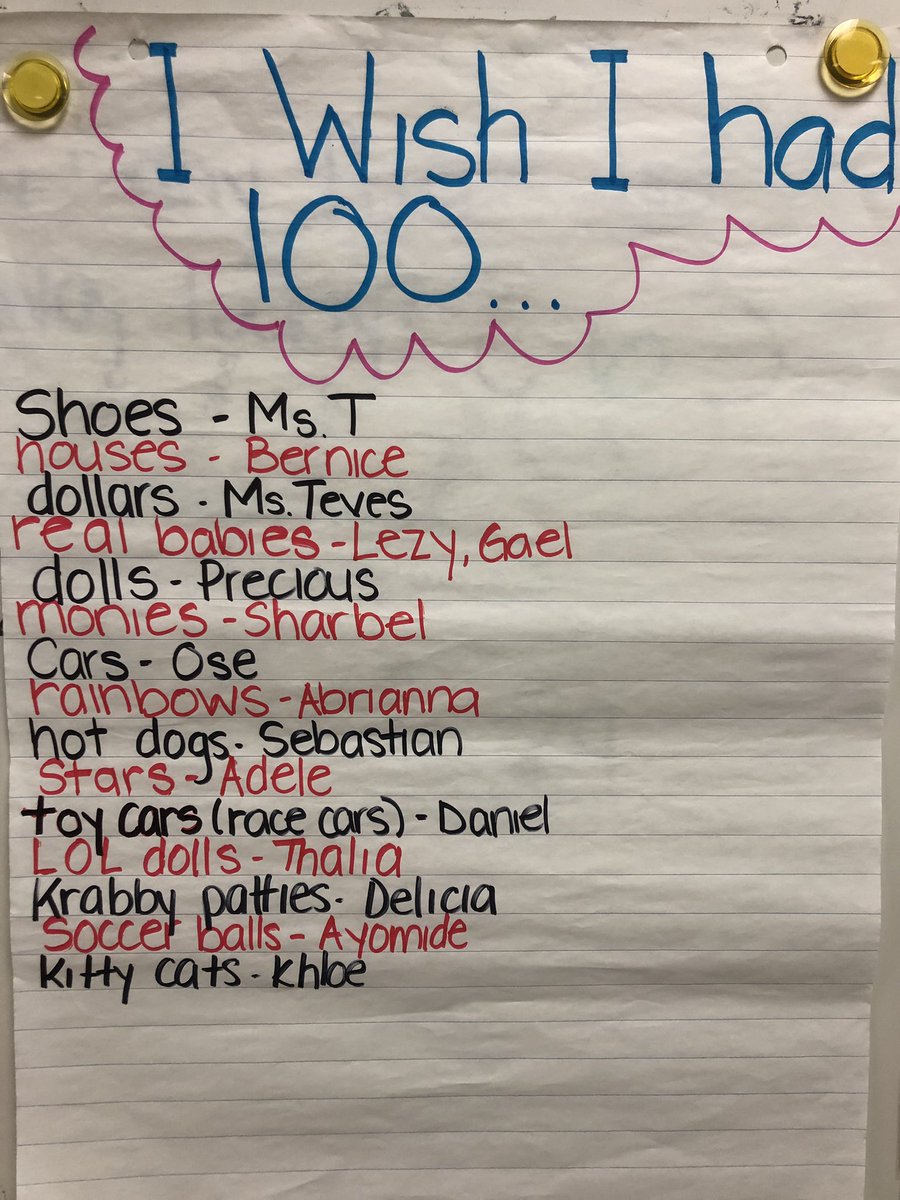 I Wish I had
100...
Shoes - Ms. T
houses - Bernice
dollars - Ms. Teves
real babies - Lezy, Gael
dolls - Precious
monies - Sharbel
Cars - Ose
rainbows - Abrianna
hot dogs - Sebastian
Stars - Adele
toy cars (race cars) - Daniel
LOL dolls - Thalia
Krabby patties - Delicia
Soccer balls - Ayomide
Kitty cats - Khloe